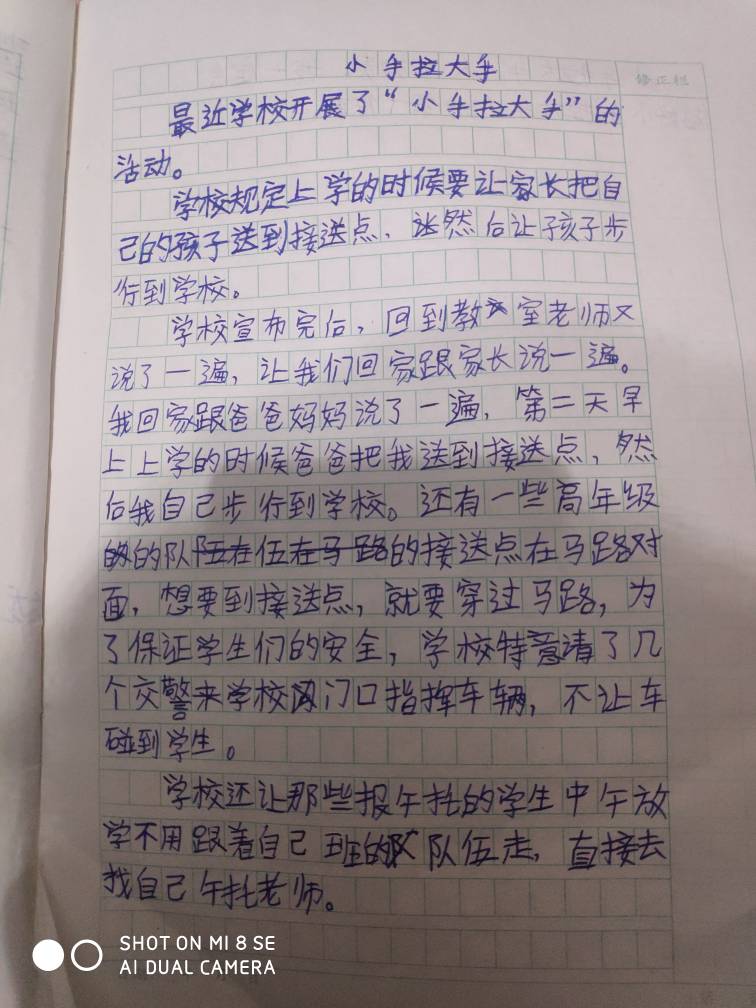 小手拉大手
修正栏
最近学校开展了“小手拉大手”的
活动。
学校规定上学的时候要让家长把自
己的孩子送到接送点，然后让孩子步
行到学校。
学校宣布完后，回到教室老师又
说了一遍，让我们回家跟家长说一遍。
我回家跟爸爸妈妈说了一遍，第二天早
上上学的时候爸爸把我送到接送点，然
后我自己步行到学校。还有一些高年级
的队伍在马路的接送点在马路对
面，想要到接送点，就要穿过马路，为
了保证学生们的安全，学校特意请了几
个交警来学校门口指挥车辆，不让车
碰到学生。
学校还让那些报午托的学生中午放
学不用跟着自己班的队伍走，直接去
找自己午托老师。
SHOT ON MI 8 SE
AI DUAL CAMERA